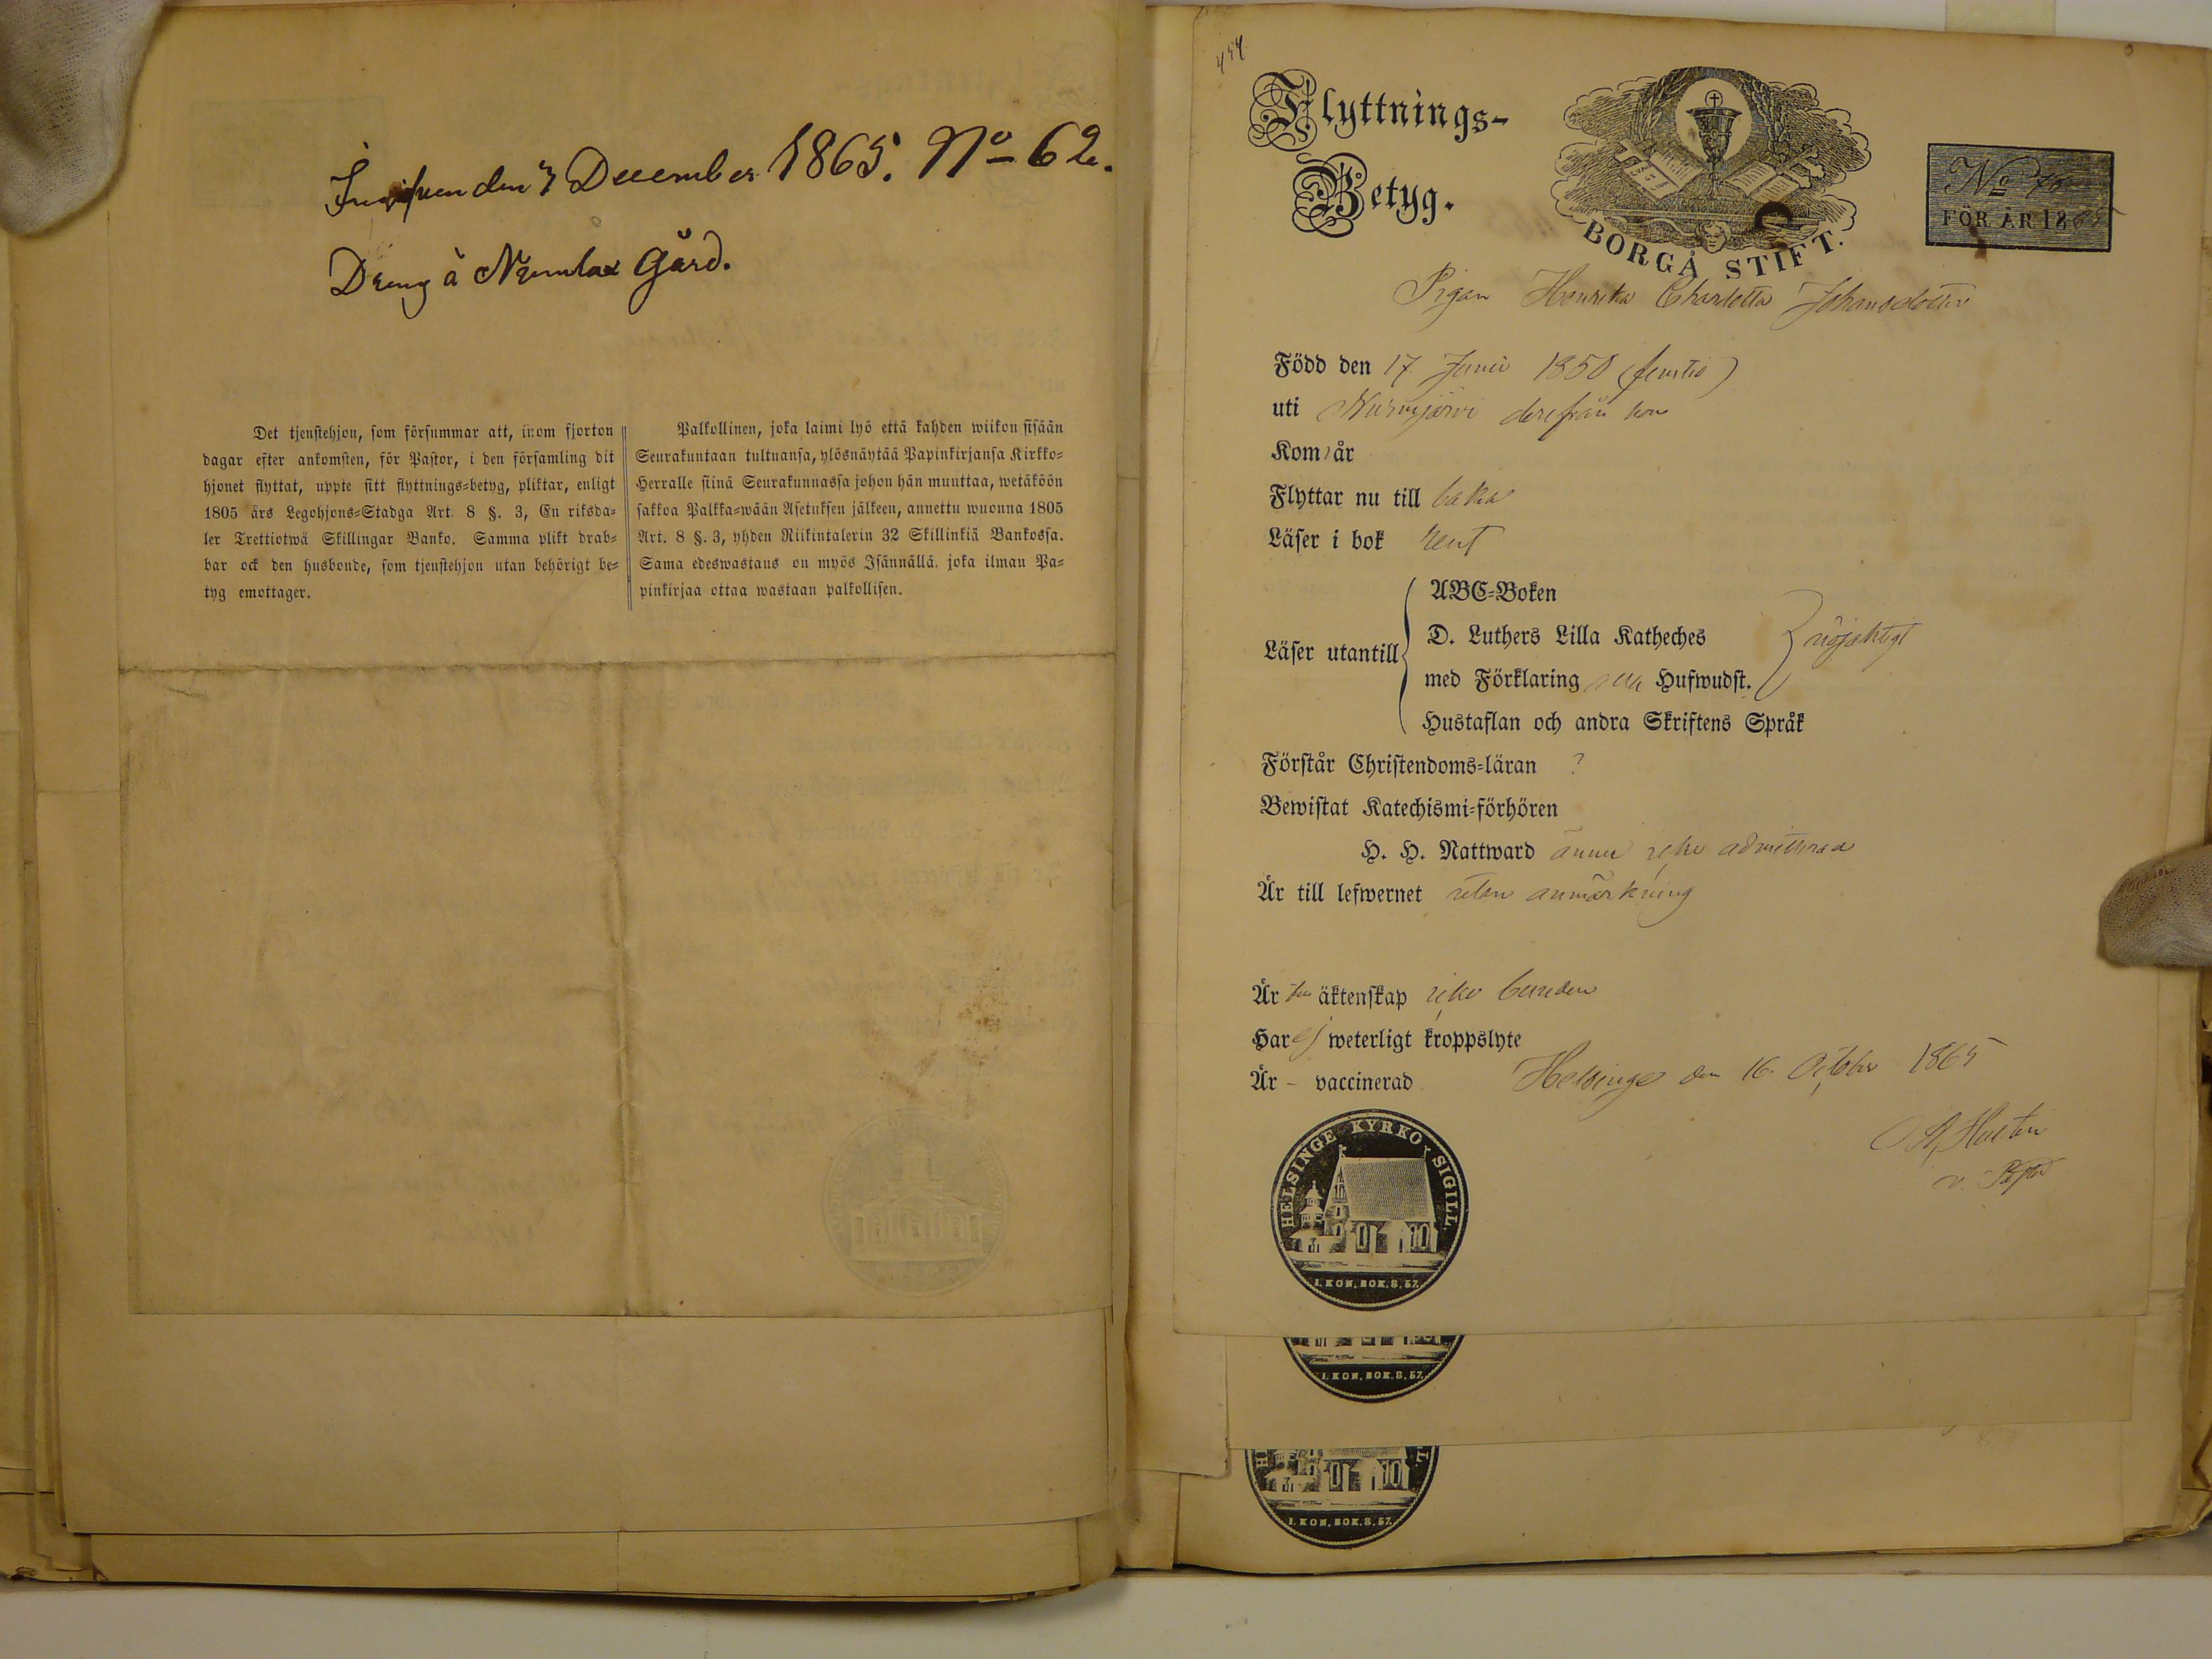 Inskrifven den 7 December 1865. No 62.
Dräng å Numlax Gård.
Det tjenstehjon, som försummar att, inom fjorton
dagar efter ankomsten, för Pastor, i den församling dit
hjonet flyttat, uppte sitt flyttnings=betyg, pliktar, enligt
1805 års Legohjons=Stadga Art. 8 §. 3, En riksda=
ler Trettiotwå Skillingar Banko. Samma plikt drab=
bar ock den husbonde, som tjenstehjon utan behörigt be=
tyg emottager.
Palkollinen, joka laimi lyö että kahden wiikon sisään
Seurakuntaan tultuansa, ylösnäytää Papinkirjansa Kirkko=
Herralle siinä Seurakunnassa johon hän muuttaa, wetäköön
sakkoa Palkka=wään Asetuksen jälkeen, annettu wuonna 1805
Art. 8 §. 3, yhden Riikintalerin 32 Skillinkiä Bankossa.
Sama edeswastaus on myös Isännällä, joka ilman Pa=
pinkirjaa ottaa wastaan palkollisen.
Flyttnings-
Betyg.
BORGÅ STIFT.
No
FÖR ÅR 1865
Pigan Henrika Charlotta Johansdotter
Född den 17 Junii 1850 (femtio)
uti Nurmijärvi derifrån hon
Kom i år
Flyttar nu till baka
Läser i bok rent
Läser utantill
ABC=Boken
D. Luthers Lilla Katheches
med Förklaring Hufwudst.
nöjaktigt
Hustaflan och andra Skriftens Språk
Förstår Christendoms=läran ?
Bewistat Katechismi=förhören
H. H. Nattward ännu icke admitterad
Är till lefwernet utan anmärkning
Är äktenskap icke bunden
Har ej weterligt kroppslyte
Är - vaccinerad
Helsinge den 16 October 1865
v. Pastor
HELSINGE KYRKO SIGILL.
I. KON. BOK. 8, 57.
I. KON. BOK. 8, 57.
I. KON. BOK. 8, 57.